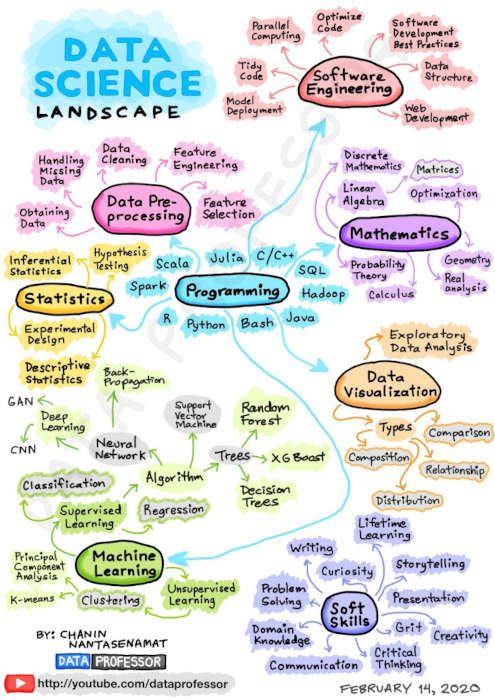 DATA
SCIENCE
LANDSCAPE
Parallel
Computing
Optimize
Code
Software
Development
Best Practices
Tidy
Code
Software
Engineering
Data
Structure
Model
Deployment
Web
Development
Handling
Missing
Data
Data
Cleaning
Feature
Engineering
Obtaining
Data
Data Pre-
processing
Feature
Selection
Discrete
Mathematics
Matrices
Linear
Algebra
Optimization
Mathematics
Probability
Theory
Calculus
Geometry
Real
analysis
Inferential
Statistics
Hypothesis
Testing
Statistics
Experimental
Design
Descriptive
Statistics
Scala
Julia
C/C++
SQL
Spark
Programming
Hadoop
R
Python
Bash
Java
Exploratory
Data Analysis
Data
Visualization
Types
Comparison
Composition
Relationship
Distribution
Back-
Propagation
GAN
Deep
Learning
CNN
Neural
Network
Support
Vector
Machine
Random
Forest
Algorithm
Trees
XG Boast
Decision
Trees
Classification
Supervised
Learning
Regression
Machine
Learning
Principal
Component
Analysis
K-means
Clustering
Unsupervised
Learning
Lifetime
Learning
Writing
Curiosity
Storytelling
Problem
Solving
Soft
Skills
Presentation
Domain
Knowledge
Grit
Creativity
Communication
Critical
Thinking
BY: CHANIN
NANTASENAMAT
DATA PROFESSOR
http://youtube.com/dataprofessor
FEBRUARY 14, 2020